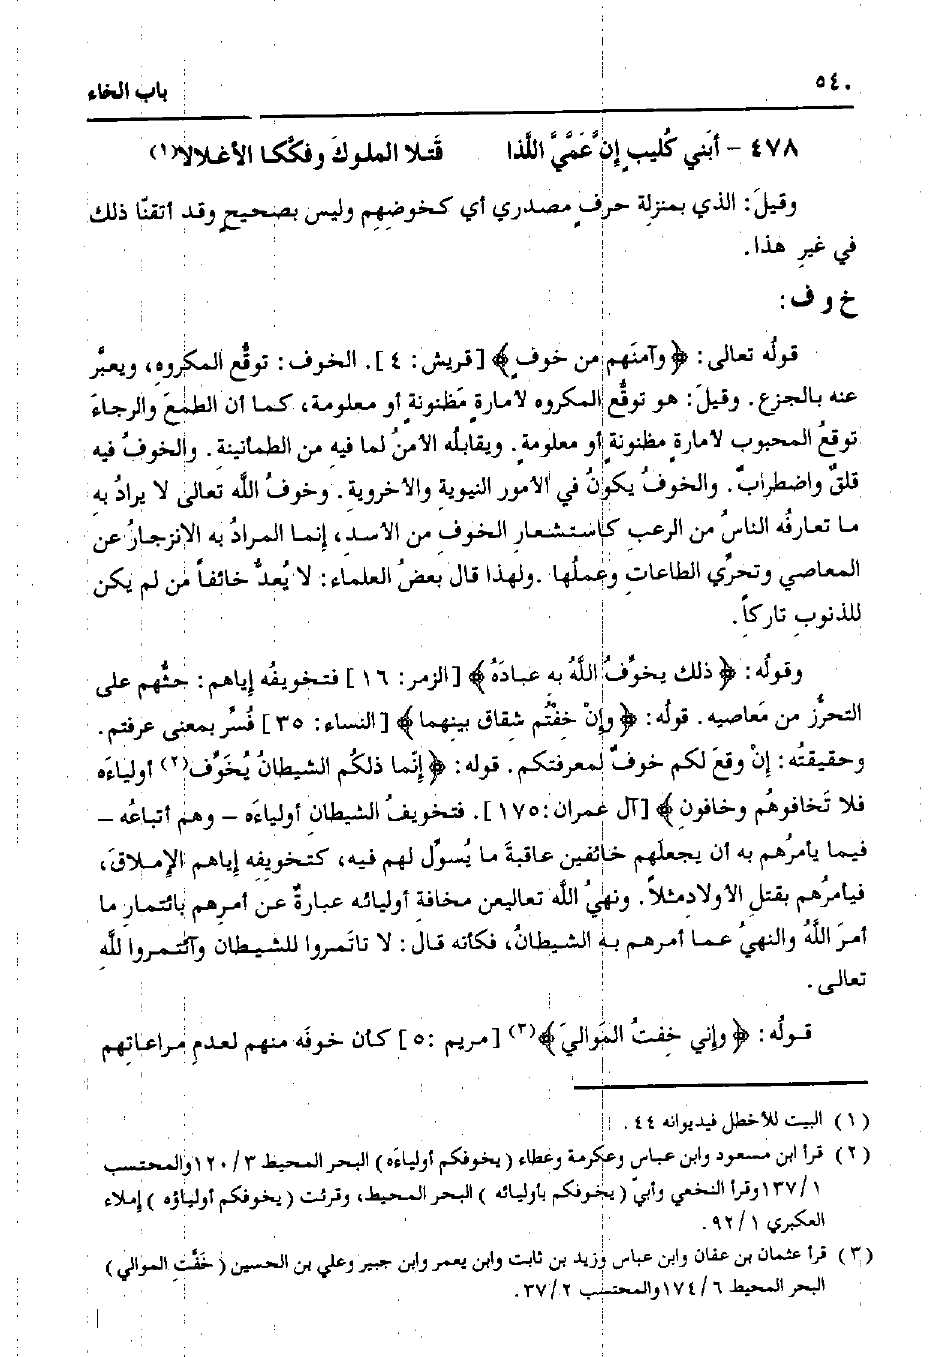 ٥٤٠ باب الخاء
٤٧٨ – أبَني كُليبٍ إنَّ عَمَّيَّ اللَّذا قَتلا الملوكَ وفكَّكا الأغلالا(١)
وقيلَ: الذي بمنزلةِ حرفٍ مصدري أي كخوضِهِم وليس بصحيحٍ وقد أتقنّا ذلك
في غيرِ هذا.
خ و ف:
قولُه تعالى: ﴿ وآمنَهم من خوفٍ ﴾ [قريش: ٤]. الخوف: توقُّع المكروهِ، ويعبَّر
عنه بالجزع. وقيلَ: هو توقُّع المكروه لأمارةٍ مَظنونة أو معلومة، كما أن الطمَعَ والرجاءَ
توقعُ المحبوب لأمارةٍ مظنونةٍ أو معلومةٍ. ويقابلُه الأمنُ لما فيهِ من الطمأنينة. والخوفُ فيه
قلقٌ واضطرابٌ. والخوفُ يكونُ في الأمور النيوية والأخروية. وخوفُ اللَّه تعالى لا يرادُ بهِ
ما تعارفُه الناسُ من الرعبِ كاستشعارِ الخوفِ من الأسدِ، إنما المرادُ به الانزجارُ عن
المعاصي وتحرِّي الطاعاتِ وعملُها .ولهذا قال بعضُ العلماء: لا يُعدُّ خائفاً من لم يكن
للذنوبِ تاركاً.
وقولُه: ﴿ ذلك يخوِّفُ اللَّهُ به عبادَهُ ﴾ [الزمر: ١٦] فتخويفُه إياهم: حثُّهم على
التحرُّز من مَعاصيه. قولُه: ﴿ وإنْ خِفْتُم شِقاق بينِهما ﴾ [النساء: ٣٥] فُسِّر بمعنى عرفتم.
وحقيقتُه: إنْ وقعَ لكم خوفٌ لمعرفتكم. قوله: ﴿ إنّما ذلكُم الشيطانُ يُخَوِّف(٢) أولياءَه
فلا تَخافوهُم وخافونِ ﴾ [آل عمران:١٧٥]. فتخويفُ الشيطانِ أولياءَه – وهم أتباعُه –
فيما يأمرُهم به أن يجعلَهم خائفين عاقبةَ ما يُسوِّل لهم فيه، كتخويفِه إياهم الإملاقَ،
فيأمرُهم بقتلِ الأولادِمثلاً. ونهيُ اللَّه تعاليعن مخافةِ أوليائه عبارةٌ عن أمرِهم بائتمارِ ما
أمرَ اللَّهُ والنهيُ عما أمرهم به الشيطانُ، فكأنه قال: لا تاتَمروا للشيطان وائتمروا للَّهِ
تعالى.
قولُه: ﴿ وإني خِفتُ المَواليَ ﴾(٣) [مريم :٥] كأن خوفَه منهم لعدمِ مراعاتِهم
(١) البيت للأخطل فيديوانه ٤٤ .
(٢) قرأ ابن مسعود وابن عباس وعكرمة وعطاء ( يخوفكم أولياءَه ) البحر المحيط ٣ /١٢٠والمحتسب
١ /١٣٧وقرأ النخعي وأبيّ ( يخوفكم بأوليائه ) البحر المحيط، وقرئت ( يخوفكم أولياؤه ) إملاء
العكبري ١ /٩٢.
(٣) قرأ عثمان بن عفان وابن عباس وزيد بن ثابت وابن يعمر وابن جبير وعلي بن الحسين ( خَفَّتِ الموالي )
البحر المحيط ٦ /١٧٤والمحتسب ٢ /٣٧.